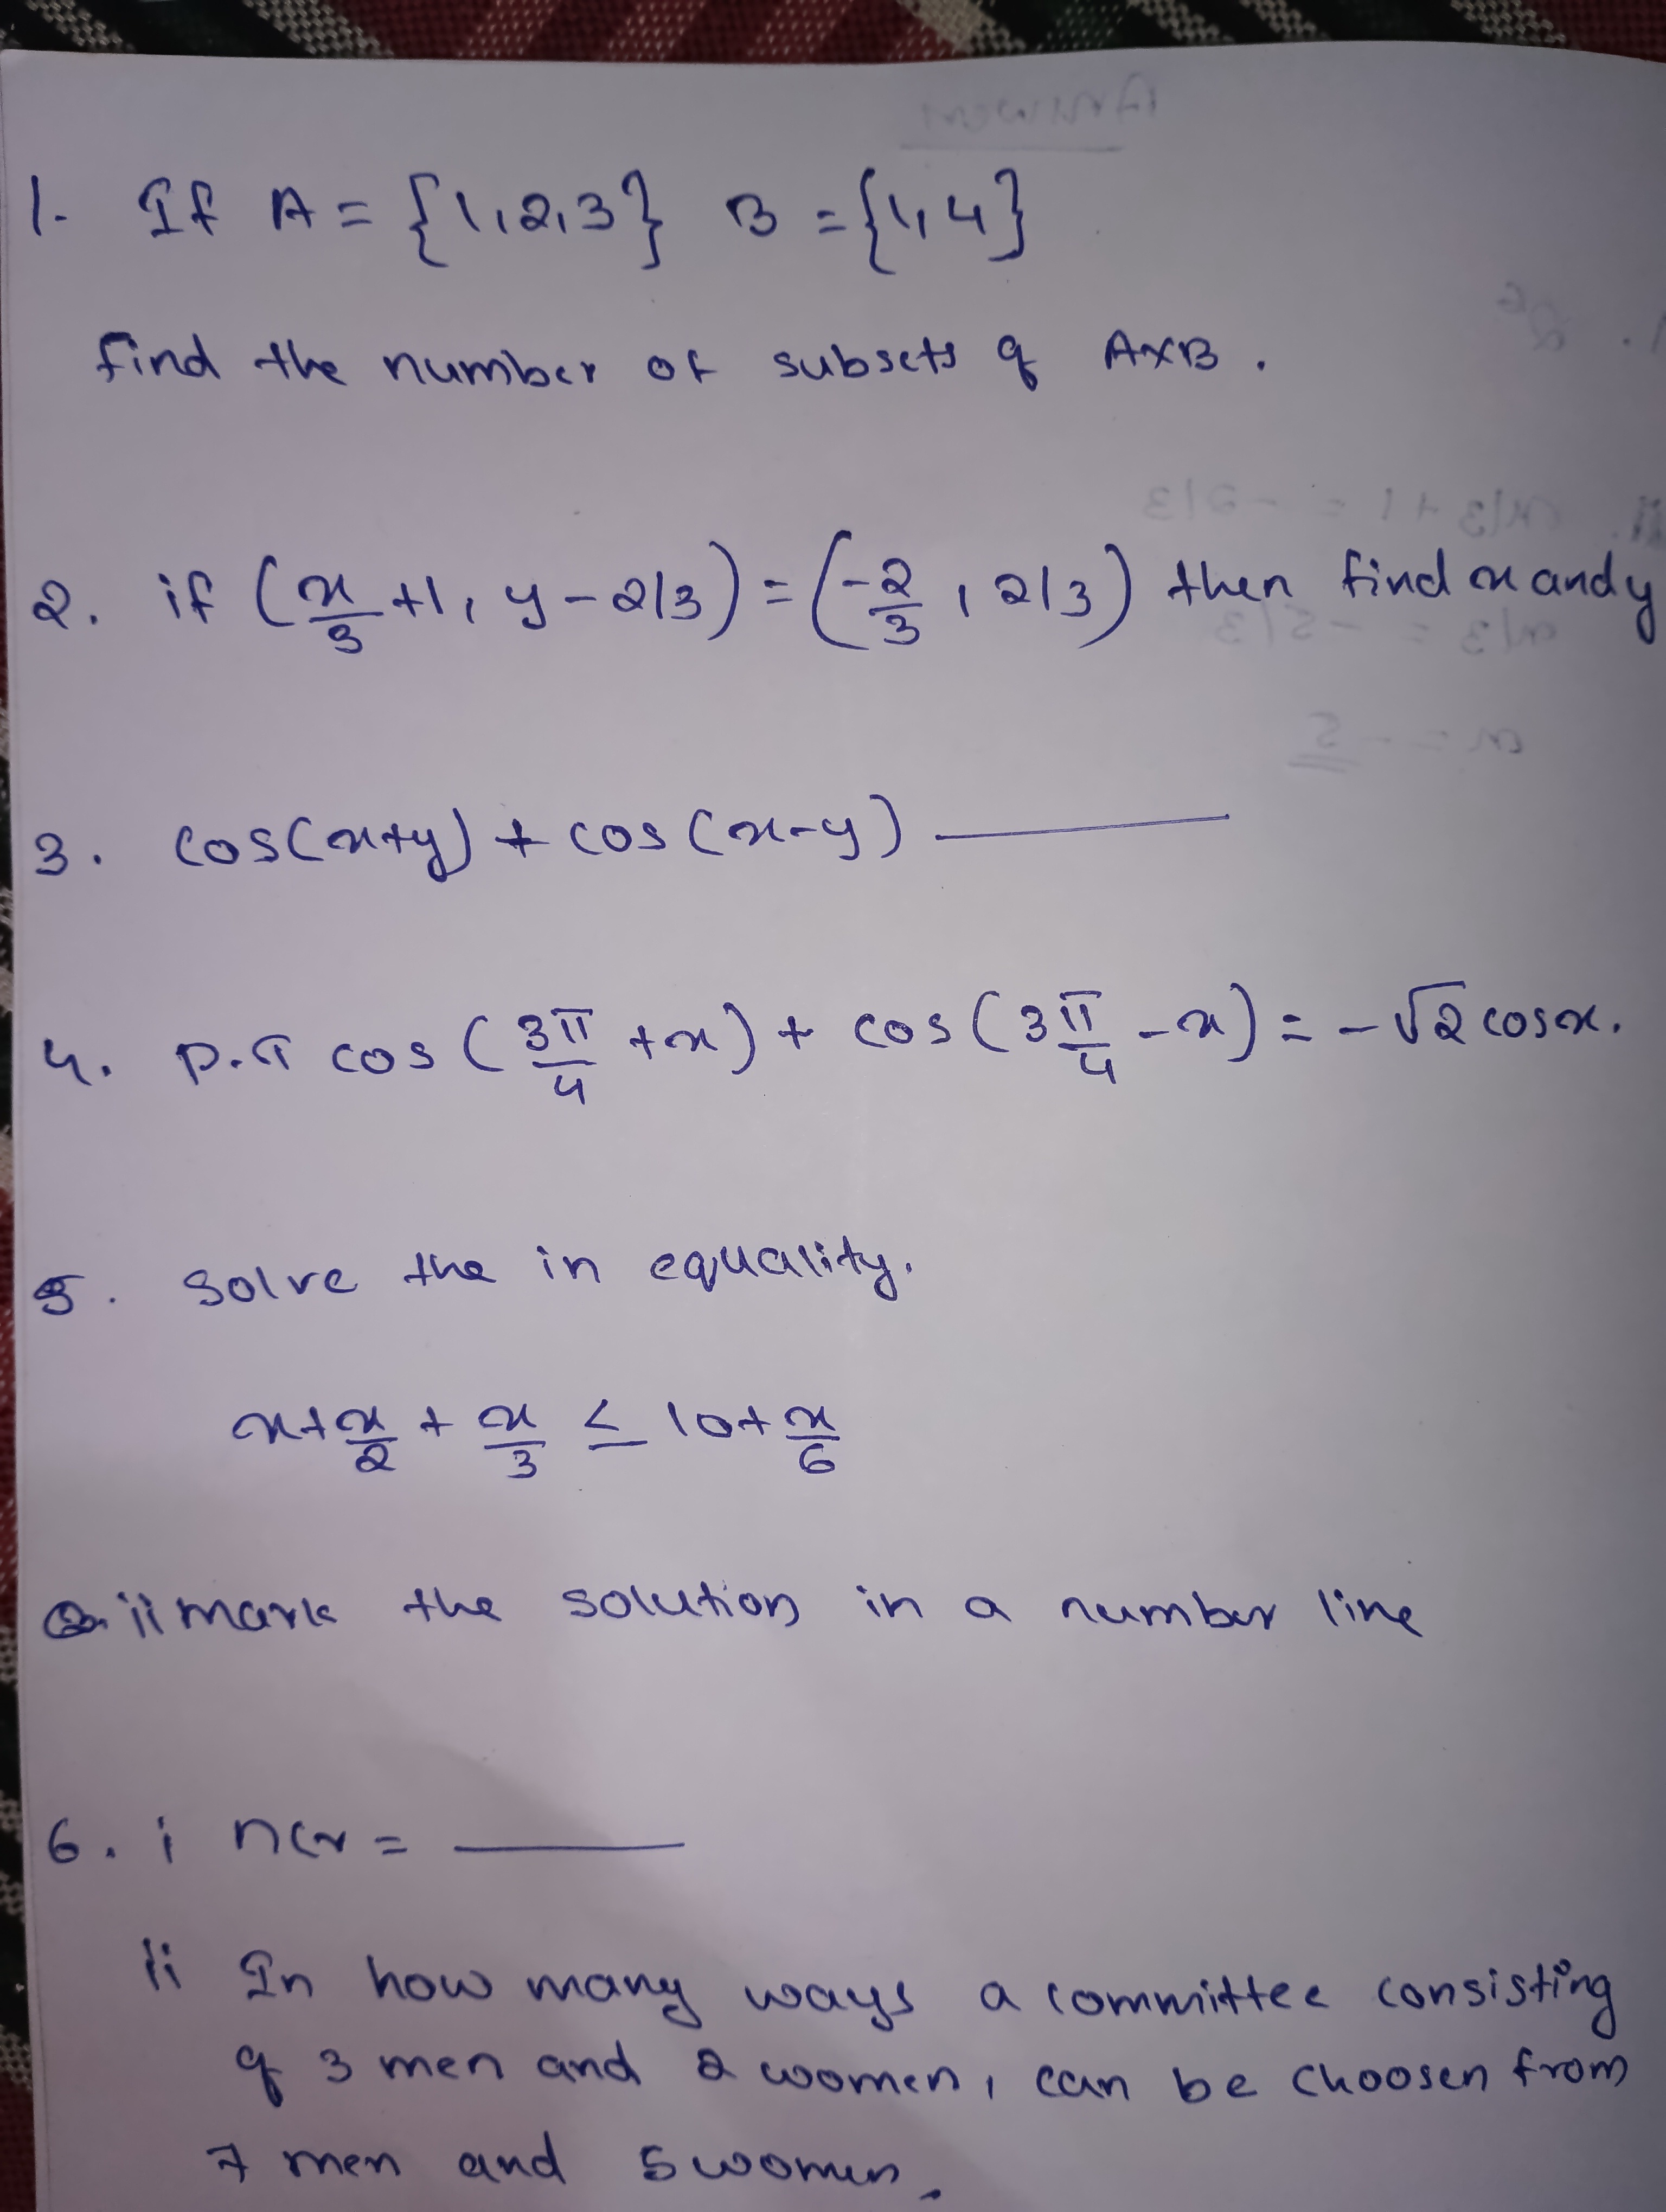 1. If A = {1,2,3} B = {1,4}
find the number of subsets of A×B.
2. if (x/3 +1, y - 2/3) = (-2/3, 2/3) then find x and y
3. cos(x+y) + cos(x-y) ______
4. P.T cos(3π/4 + x) + cos(3π/4 - x) = -√2 cosx.
5. Solve the in equality.
x + x/2 + x/3 ≤ 10 + x/6
ii mark the solution in a number line
6. i ncr = ______
ii In how many ways a committee consisting
of 3 men and 2 women, can be choosen from
7 men and 5 women.